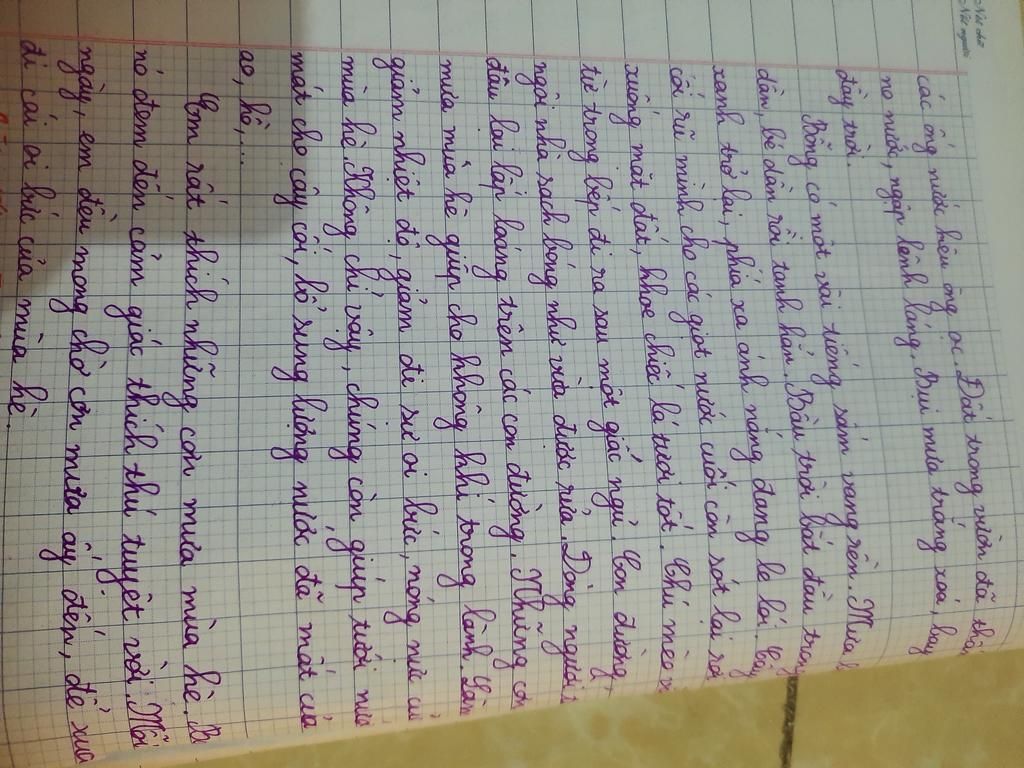 Nét chữ
Nết người
các ống nước kêu ồng ộc. Đất trong vườn đã thấm
no nước, ngập lênh láng. Bụi mưa trắng xoá, bay
đầy trời.
Bỗng có một vài tiếng sấm vang rền. Mưa
dần, bé dần rồi tạnh hẳn. Bầu trời bắt đầu trong
xanh trở lại, phía xa ánh nắng đang le lói. Cây
cối rũ mình cho các giọt nước cuối còn sót lại rơi
xuống mặt đất, khoe chiếc lá tươi tốt. Chú mèo
từ trong bếp đi ra sau một giấc ngủ. Con đường,
ngôi nhà sạch bóng như vừa được rửa. Dòng người
đâu lại lấp loáng trên các con đường. Những cơn
mưa mùa hè giúp cho không khí trong lành. Làm
giảm nhiệt độ, giảm đi sự oi bức, nóng nực
mùa hè. Không chỉ vậy, chúng còn giúp tưới
mát cho cây cối, bổ sung lượng nước đã mất của
ao, hồ,...
Em rất thích những cơn mưa mùa hè.
nó đem đến cảm giác thích thú tuyệt vời. Mỗi
ngày, em đều mong chờ cơn mưa ấy đến, để xua
đi cái oi bức của mùa hè.